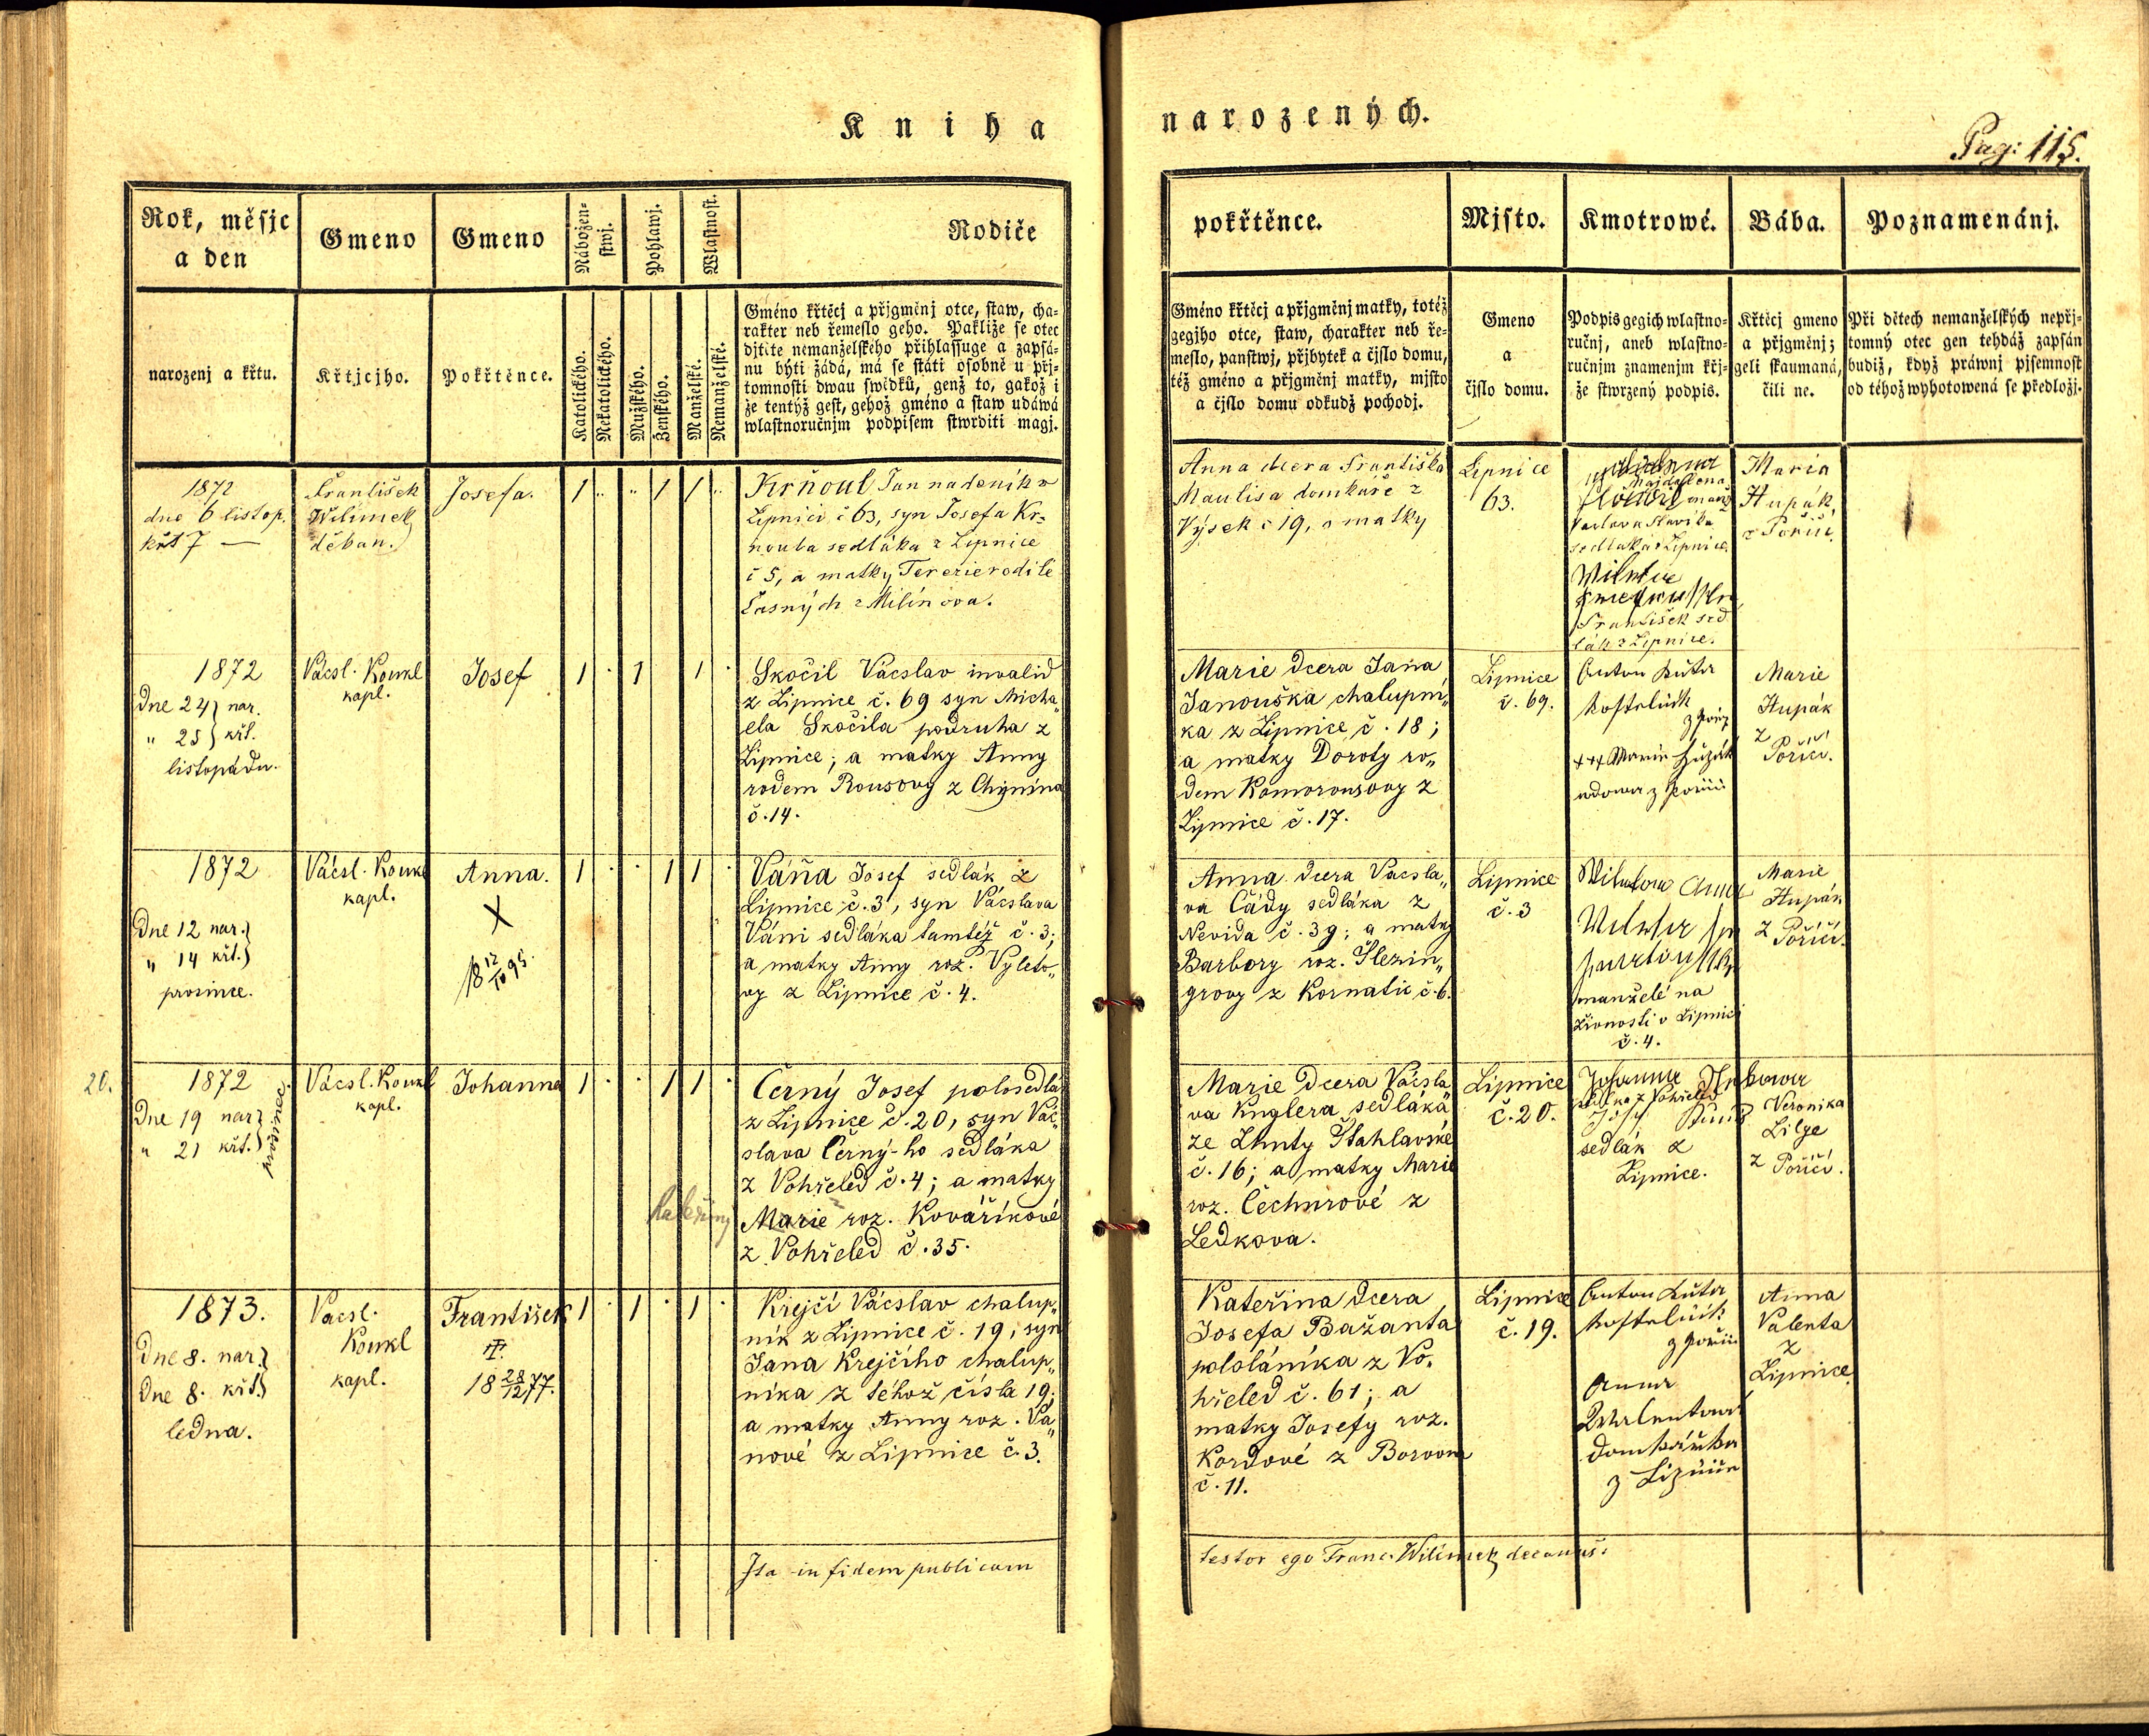 Kniha narozených.
Pag: 115.
Rok, měsjc
a den
narozenj a křtu.
Gmeno
Křtjcjho.
Gmeno
Pokřtěnce.
Nábožen-
stwj.
Katolického.
Nekatolického.
Pohlawj.
Mužského.
Ženského.
Wlastnost.
Manželské.
Nemanželské.
Rodiče
Gméno křtěcj a přjgmenj otce, staw, cha-
rakter neb řemeslo geho. Pakliže se otec
djtěte nemanželského přihlassuge a zapsá-
nu býti žádá, má se státi osobně u přj-
tomnosti dwau swědků, genž to, gakož i
že tentýž gest, gehož gméno a staw udáwá
wlastnoručnjm podpisem stwrditi magj.
pokřtěnce.
Gméno křtěcj a přjgměnj matky, totéž
gegjho otce, staw, charakter neb ře-
meslo, panstwj, přjbytek a čjslo domu,
též gméno a přjgměnj matky, mjsto
a čjslo domu odkudž pochodj.
Mjsto.
Gmeno
a
čjslo domu.
Kmotrowé.
Podpis gegich wlastno-
ručnj, aneb wlastno-
ručnjm znamenjm křj-
že stwrzený podpis.
Bába.
Křtěcj gmeno
a přjgměnj;
geli skaumaná,
čili ne.
Poznamenánj.
Při dětech nemanželských nepřj-
tomný otec gen tehdáž zapsán
budiž, když práwnj pjsemnost
od téhož wyhotowená se předložj.
1872
dne 6 listop.
křt 7 —
František
Wilimek
děkan.
Josefa.
1 1 1
Krňoul Jan nadeník v
Lipnici č 63, syn Josefa Kr-
noula sedláka z Lipnice
č 5, a matky Terezie rodilé
Časných z Milínova.
Anna dcera Františka
Maulisa domkáře z
Výsek č 19, a matky
Lipnice
63.
Majdalena
manž
Václava Slavíka
sedláka z Lipnice.
František sed
lák z Lipnice.
Maria
Hupák
z Poříčí.
1872
Dne 24 nar.
" 25 křt.
listopadu.
Vácsl. Koukl
kapl.
Josef
1 1 1
Skočil Václav invalid
z Lipnice č. 69 syn Micha„
ela Skočila podruha z
Lipnice; a matky Anny
rodem Rousovy z Chýnína
č. 14.
Marie dcera Jana
Janouška chalupní„
ka z Lipnice č. 18;
a matky Doroty ro„
dem Komoroušovy z
Lipnice č. 17.
Lipnice
č. 69.
Anton Kuta
kostelník
z Poříčí
+++ Marie Hupák
vdova z Poříčí
Marie
Hupák
z
Poříčí.
1872
Dne 12 nar.
" 14 křt.
prosince.
Vácsl. Koukl
kapl.
Anna.
X
18 12/10 95.
1 1 1
Váňa Josef sedlák z
Lipnice č. 3, syn Vácslava
Váni sedláka tamtéž č. 3;
a matky Anny roz. Vyleto„
vy z Lipnice č. 4.
Anna dcera Vácsla„
va Čády sedláka z
Nevida č. 39; a matky
Barbory roz. Šlezin„
grovy z Kornatic č. 6.
Lipnice
č. 3
manželé na
živnosti v Lipnici
č. 4.
Marie
Hupák
z Poříčí.
20.
1872
Dne 19 nar.
" 21 křt.
prosince.
Vácsl. Koukl
kapl.
Johanna
1 1 1
Černý Josef polosedlá
z Lipnice č. 20, syn Vác„
slava Černý-ho sedláka
z Vohřeled č. 4; a matky
Kateřiny
Marie roz. Kovaříkové
z Vohřeled č. 35.
Marie dcera Vácsla„
va Knglera sedláka
ze Lhuty Šťahlavské
č. 16; a matky Marie
roz. Čechurové z
Ledkova.
Lipnice
č. 20.
Johanna
z Vohřeled
sedlák z
Lipnice.
Veronika
Lilge
z Poříčí.
1873.
Dne 8. nar.
Dne 8. křt.
ledna.
Vácsl.
Koukl
kapl.
František
18 28/12 77.
1 1 1
Krejčí Vácslav chalup„
ník z Lipnice č. 19, syn
Jana Krejčího chalup„
níka z téhož čísla 19;
a matky Anny roz. Vá„
nové z Lipnice č. 3.
Kateřina dcera
Josefa Bažanta
pololáníka z Vo„
hřeled č. 61; a
matky Josefy roz.
Kordové z Borovna
č. 11.
Lipnice
č. 19.
Anton Kuta
kostelník
z Poříčí
Anna
Walentová
domkářka
z Lipnice
Anna
Valenta
z
Lipnice.
Ita in fidem publicam
testor ego Franc. Wilimek decanus.